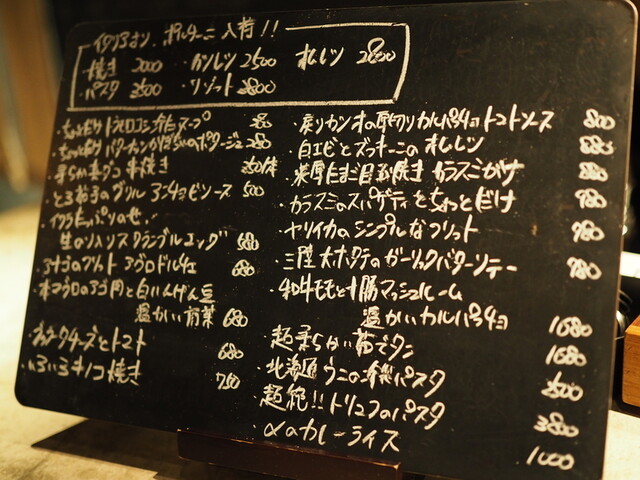 イタリアより、ポルチーニ入荷!!
焼き 2000 カツレツ 2500 オムレツ 2800
パスタ 2500 リゾット 2800
・ちょっとだけ トラピストスープ
・ちょっとだけ ポタージュ 280
・柔らか真ダコ串焼き
・とろ茄子のグリル アンチョビソース 500
・イクラたっぷりのせ!
生のり入りスクランブルエッグ 680
・アナゴのフリット アグロドルチェ 680
・本マグロのアゴ肉と白いんげん豆
温かい前菜 680
チーズとトマト 680
・いろいろキノコ焼き 780
・戻りカツオの厚切りカルパッチョ トマトソース 800
・白エビとズッキーニのオムレツ 880
・たまご目玉焼き カラスミがけ 880
・カラスミのスパゲティをちょっとだけ 980
・ヤリイカのシンプルなフリット 980
・三陸 大ホタテのガーリックバターソテー 980
・和牛モモと十勝マッシュルーム
温かいカルパッチョ 1680
・超柔らかい茹でタン 1680
・北海道ウニの冷製パスタ 2500
・超絶!!トリュフのパスタ 3800
・αのカレーライス 1000